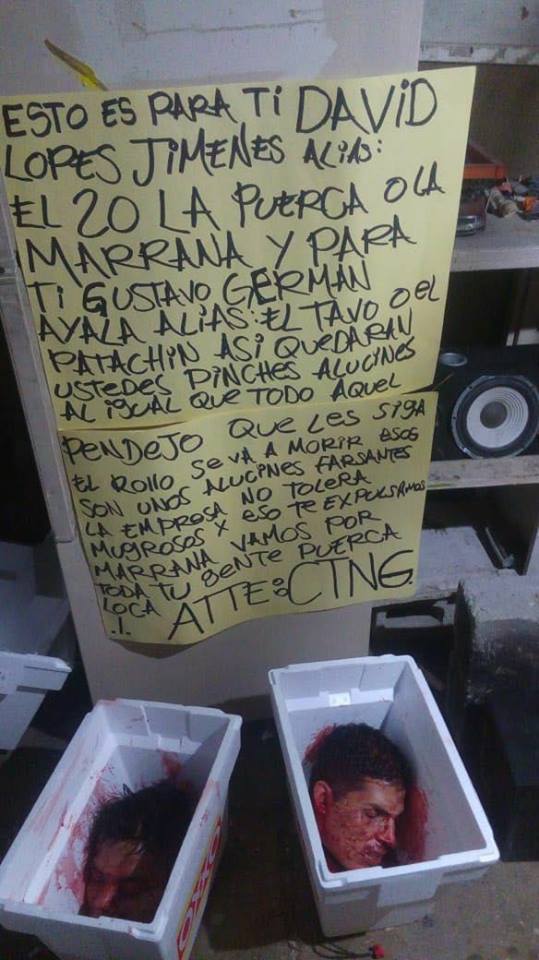 ESTO ES PARA TI DAVID
LOPES JIMENES ALIAS:
EL 20 LA PUERCA O LA
MARRANA Y PARA
TI GUSTAVO GERMAN
AYALA ALIAS: EL TAVO O EL
PATACHIN ASI QUEDARAN
USTEDES PINCHES ALUCINES
AL IGUAL QUE TODO AQUEL
PENDEJO QUE LES SIGA
EL ROLLO SE VA A MORIR ESOS
SON UNOS ALUCINES FARSANTES
LA EMPRESA NO TOLERA
MUGROSOS X ESO TE EXPULSAMOS
MARRANA VAMOS POR
TODA TU GENTE PUERCA
LOCA
ATTE: CTNG.